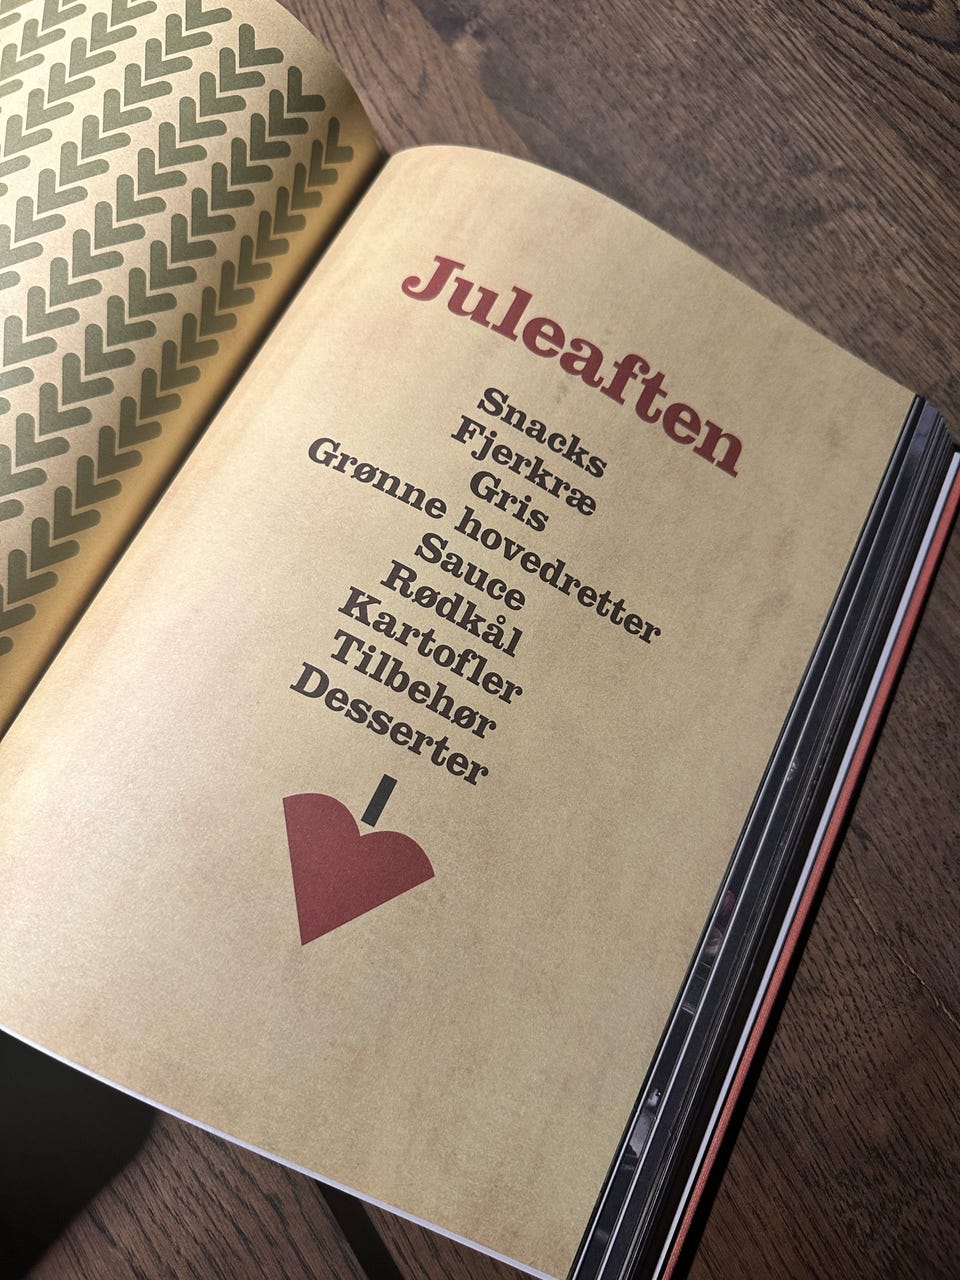 Juleaften
Snacks
Fjerkræ
Gris
Grønne hovedretter
Sauce
Rødkål
Kartofler
Tilbehør
Desserter